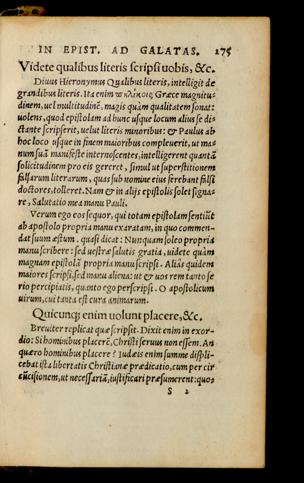 IN EPIST. AD GALATAS. 275
Videte qualibus literis scripsi uobis, &c.
Diuus Hieronymus Qualibus literis, intelligit de
grandibus literis. Ita enim πηλίκοις Græce magnitu-
dinem, uel multitudinē, magis quàm qualitatem sonat:
uolens, quod epistolam ad hunc usque locum alius se di-
ctante scripserit, uelut literis minoribus: & Paulus ab
hoc loco usque in finem maioribus compleuerit, ut ma-
num suā manifeste internoscentes, intelligerent quantā
sollicitudinem pro eis gereret, simul ut superstitionem
falsarum literarum, quas sub nomine eius ferebant falsi
doctores, tolleret. Nam & in alijs epistolis solet signa-
re, Salutatio mea manu Pauli.
Verum ego eos sequor, qui totam epistolam sentiūt
ab apostolo propria manu exaratam, in quo commen-
dat suum æstum. quasi dicat: Nunquam soleo propria
manu scribere: sed uestræ salutis gratia, uidete quàm
magnam epistolā propria manu scripsi. Alias quidem
maiores scripsi, sed manu aliena: ut & uos rem tanto se
rio percipiatis, quanto ego perscripsi. O apostolicum
uirum, cui tanta est cura animarum.
Quicunq; enim uolunt placere, &c.
Breuiter replicat quæ scripsit. Dixit enim in exor-
dio: Si hominibus placerē, Christi seruus non essem. An
quæro hominibus placere? Iudæis enim summe displi-
cebat ista libertatis Christianæ prædicatio, cum per cir
cūcisionem, ut necessariā, iustificari præsumerent: quos
S 2